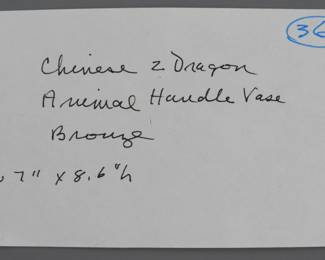 36
Chinese 2 Dragon
Animal Handle Vase
Bronze
7" x 8.6"h